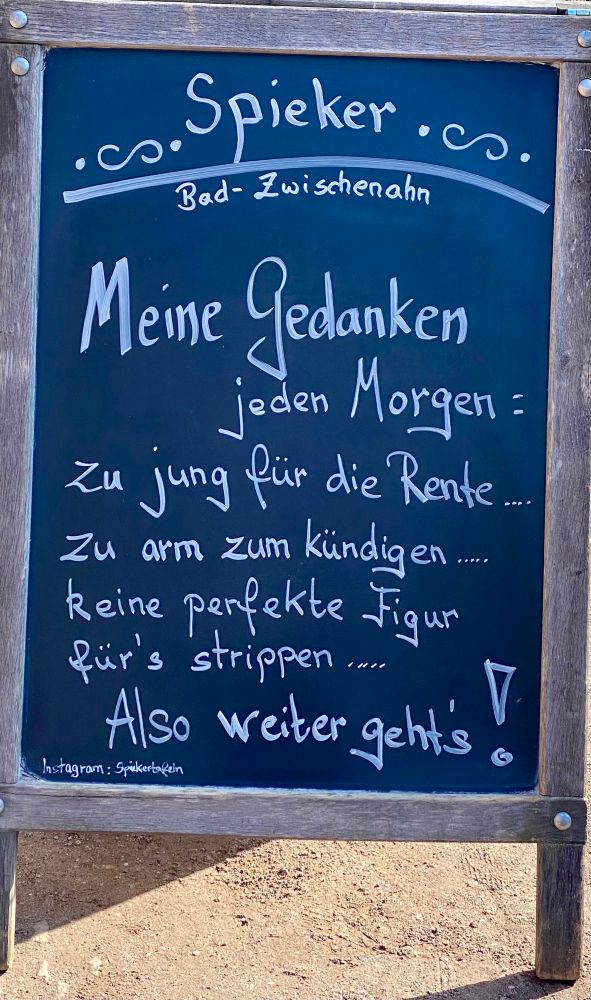 Spieker
Bad-Zwischenahn
Meine Gedanken
jeden Morgen:
Zu jung für die Rente....
Zu arm zum kündigen.....
keine perfekte Figur
für's strippen.....
Also weiter geht's!
Instagram: Spiekertafeln